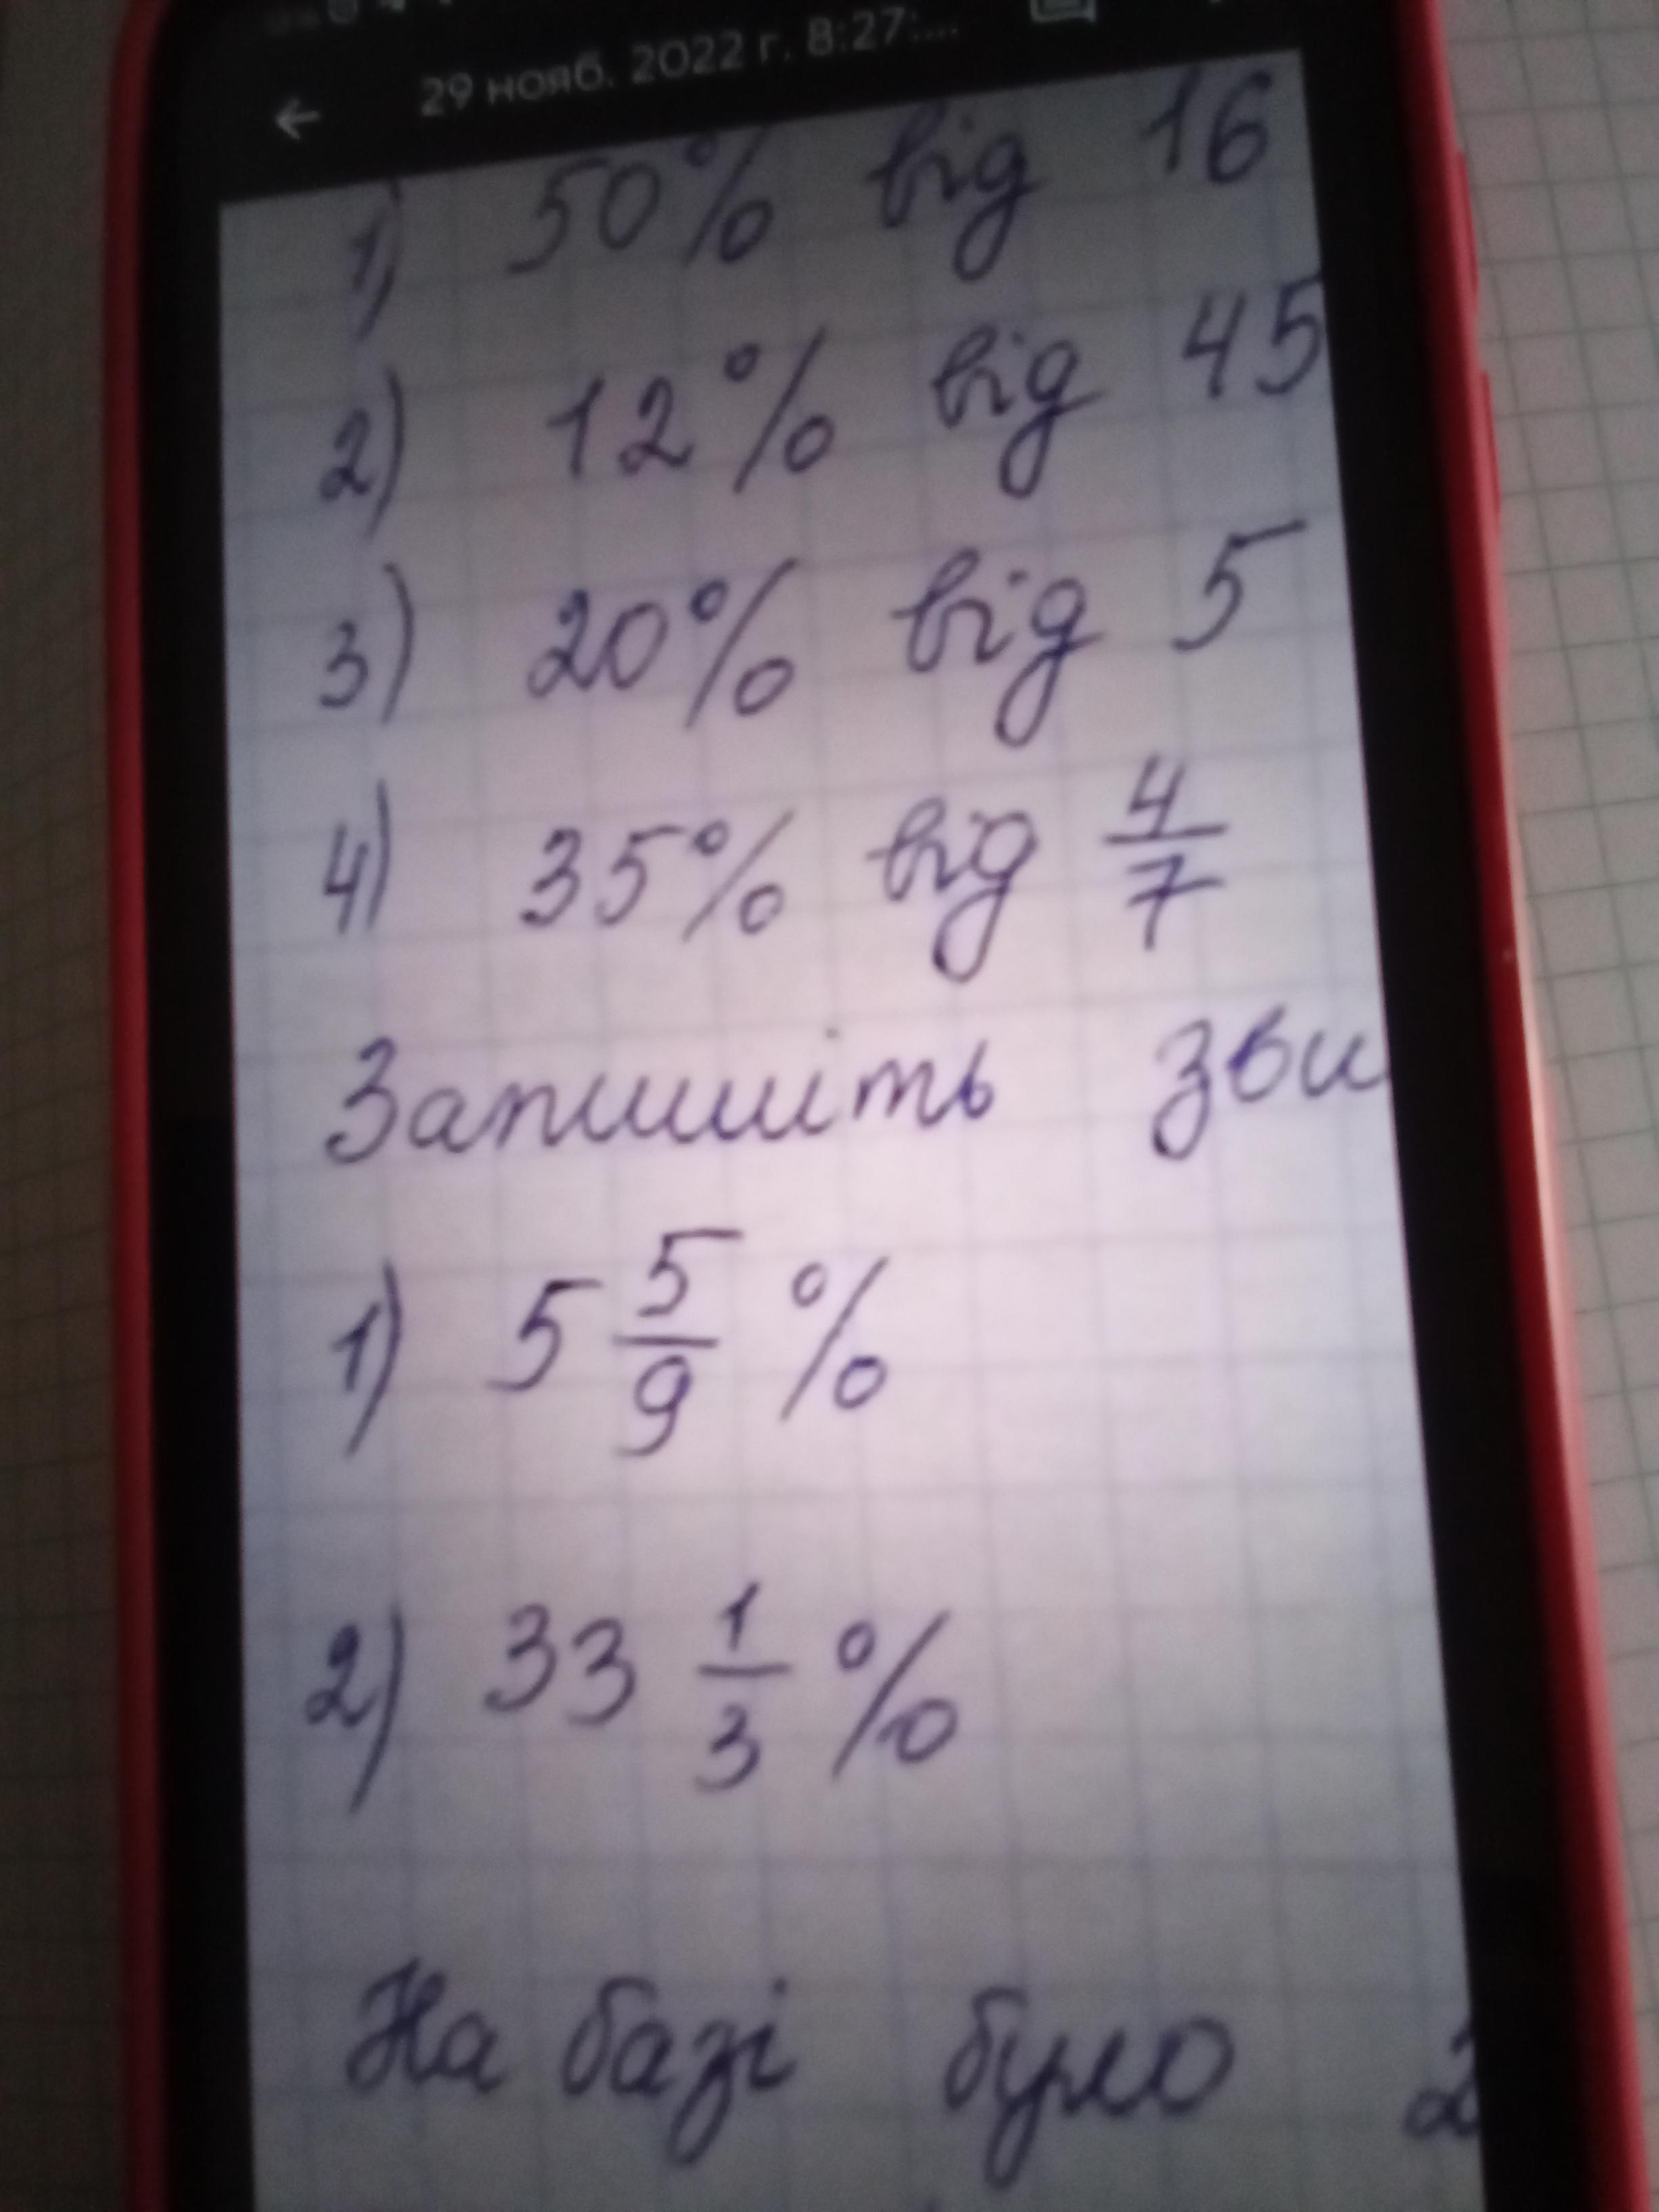 29 нояб. 2022 г. 8:27:...
1) 50% від 16
2) 12% від 45
3) 20% від 5
4) 35% від 4/7
Запишіть зви
1) 5 5/9 %
2) 33 1/3 %
На базі було 2